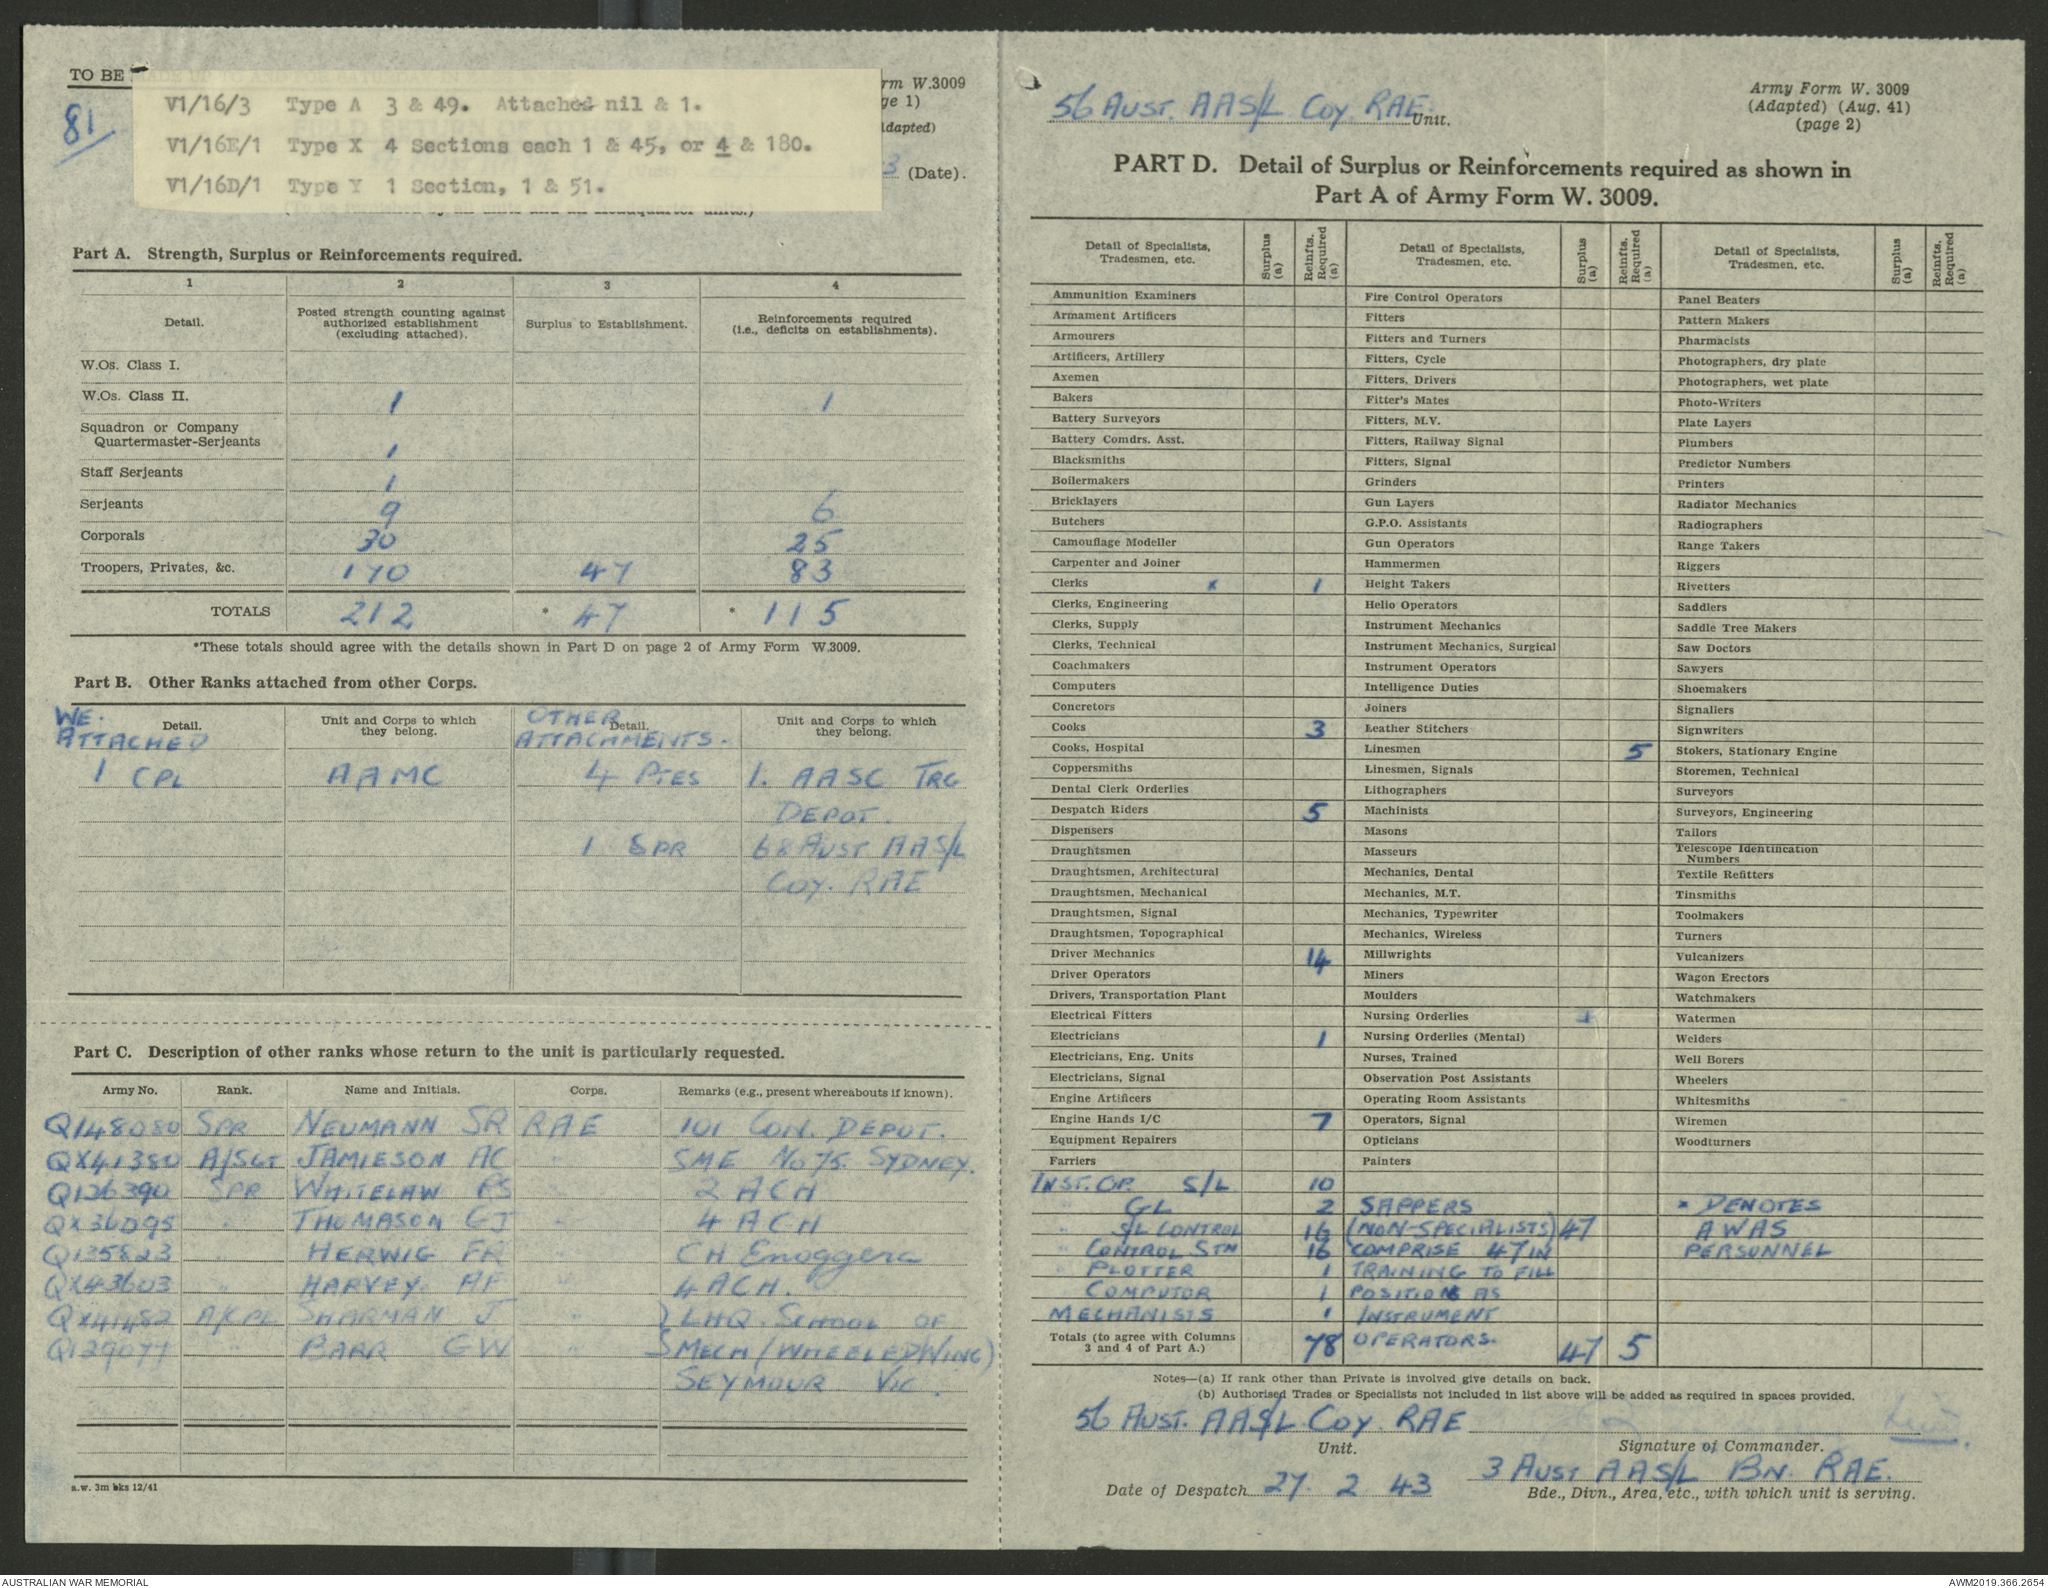 TO BE
81
V1/16/3 Type A 3 & 49. Attached nil & 1.
V1/16E/1 Type X 4 Sections each 1 & 45, or 4 & 180.
V1/16D/1 Type Y 1 Section, 1 & 51.
rm W.3009
ge 1)
dapted)
3 (Date).
Part A. Strength, Surplus or Reinforcements required.
1 2 3 4
Detail. Posted strength counting against authorized establishment (excluding attached). Surplus to Establishment. Reinforcements required (i.e., deficits on establishments).
W.Os. Class I.
W.Os. Class II. 1 1
Squadron or Company Quartermaster-Serjeants 1
Staff Serjeants 1
Serjeants 9 6
Corporals 30 25
Troopers, Privates, &c. 170 47 83
TOTALS 212 * 47 * 115
*These totals should agree with the details shown in Part D on page 2 of Army Form W.3009.
Part B. Other Ranks attached from other Corps.
WE. ATTACHED Detail. Unit and Corps to which they belong. OTHER ATTACHMENTS. Detail. Unit and Corps to which they belong.
1 CPL AAMC 4 PTES 1. AASC TRG
DEPOT.
1 SPR 68 AUST AAS/L
COY. RAE
Part C. Description of other ranks whose return to the unit is particularly requested.
Army No. Rank. Name and Initials. Corps. Remarks (e.g., present whereabouts if known).
Q148080 SPR NEUMANN SR RAE 101 CON. DEPOT.
QX41380 A/SGT JAMIESON AC " SME No 75. SYDNEY.
Q126390 SPR WHITELAW RS " 2 ACH
QX36095 " THOMASON GJ " 4 ACH
Q135823 " HERWIG FR " CH Enoggera
QX43603 " HARVEY. AF " 4 ACH.
QX41482 A/CPL SHARMAN J " } LHQ. SCHOOL OF
Q129077 " BARR GW " } MECH (WHEELED WING)
SEYMOUR VIC.
a.w. 3m bks 12/41
56 AUST. AAS/L COY RAE. Unit.
Army Form W. 3009
(Adapted) (Aug. 41)
(page 2)
PART D. Detail of Surplus or Reinforcements required as shown in
Part A of Army Form W. 3009.
Detail of Specialists, Tradesmen, etc. Surplus (a) Reinfts. Required (a) Detail of Specialists, Tradesmen, etc. Surplus (a) Reinfts. Required (a) Detail of Specialists, Tradesmen, etc. Surplus (a) Reinfts. Required (a)
Ammunition Examiners Fire Control Operators Panel Beaters
Armament Artificers Fitters Pattern Makers
Armourers Fitters and Turners Pharmacists
Artificers, Artillery Fitters, Cycle Photographers, dry plate
Axemen Fitters, Drivers Photographers, wet plate
Bakers Fitter's Mates Photo-Writers
Battery Surveyors Fitters, M.V. Plate Layers
Battery Comdrs. Asst. Fitters, Railway Signal Plumbers
Blacksmiths Fitters, Signal Predictor Numbers
Boilermakers Grinders Printers
Bricklayers Gun Layers Radiator Mechanics
Butchers G.P.O. Assistants Radiographers
Camouflage Modeller Gun Operators Range Takers
Carpenter and Joiner Hammermen Riggers
Clerks x 1 Height Takers Rivetters
Clerks, Engineering Helio Operators Saddlers
Clerks, Supply Instrument Mechanics Saddle Tree Makers
Clerks, Technical Instrument Mechanics, Surgical Saw Doctors
Coachmakers Instrument Operators Sawyers
Computers Intelligence Duties Shoemakers
Concretors Joiners Signallers
Cooks 3 Leather Stitchers Signwriters
Cooks, Hospital Linesmen 5 Stokers, Stationary Engine
Coppersmiths Linesmen, Signals Storemen, Technical
Dental Clerk Orderlies Lithographers Surveyors
Despatch Riders 5 Machinists Surveyors, Engineering
Dispensers Masons Tailors
Draughtsmen Masseurs Telescope Identification Numbers
Draughtsmen, Architectural Mechanics, Dental Textile Refitters
Draughtsmen, Mechanical Mechanics, M.T. Tinsmiths
Draughtsmen, Signal Mechanics, Typewriter Toolmakers
Draughtsmen, Topographical Mechanics, Wireless Turners
Driver Mechanics 14 Millwrights Vulcanizers
Driver Operators Miners Wagon Erectors
Drivers, Transportation Plant Moulders Watchmakers
Electrical Fitters Nursing Orderlies Watermen
Electricians 1 Nursing Orderlies (Mental) Welders
Electricians, Eng. Units Nurses, Trained Well Borers
Electricians, Signal Observation Post Assistants Wheelers
Engine Artificers Operating Room Assistants Whitesmiths
Engine Hands I/C 7 Operators, Signal Wiremen
Equipment Repairers Opticians Woodturners
Farriers Painters
INST. OP. S/L 10
" GL 2 SAPPERS x DENOTES
" S/L CONTROL 16 (NON-SPECIALISTS) 47 AWAS
" CONTROL STN 16 COMPRISE 47 IN PERSONNEL
" PLOTTER 1 TRAINING TO FILL
" COMPUTOR 1 POSITIONS AS
MECHANISTS 1 INSTRUMENT
Totals (to agree with Columns 3 and 4 of Part A.) 78 OPERATORS. 47 5
Notes—(a) If rank other than Private is involved give details on back.
(b) Authorised Trades or Specialists not included in list above will be added as required in spaces provided.
56 AUST. AAS/L. COY. RAE
Unit. Signature of Commander.
3 AUST AAS/L BN. RAE.
Date of Despatch 27. 2. 43 Bde., Divn., Area, etc., with which unit is serving.
AUSTRALIAN WAR MEMORIAL AWM2019.366.2654